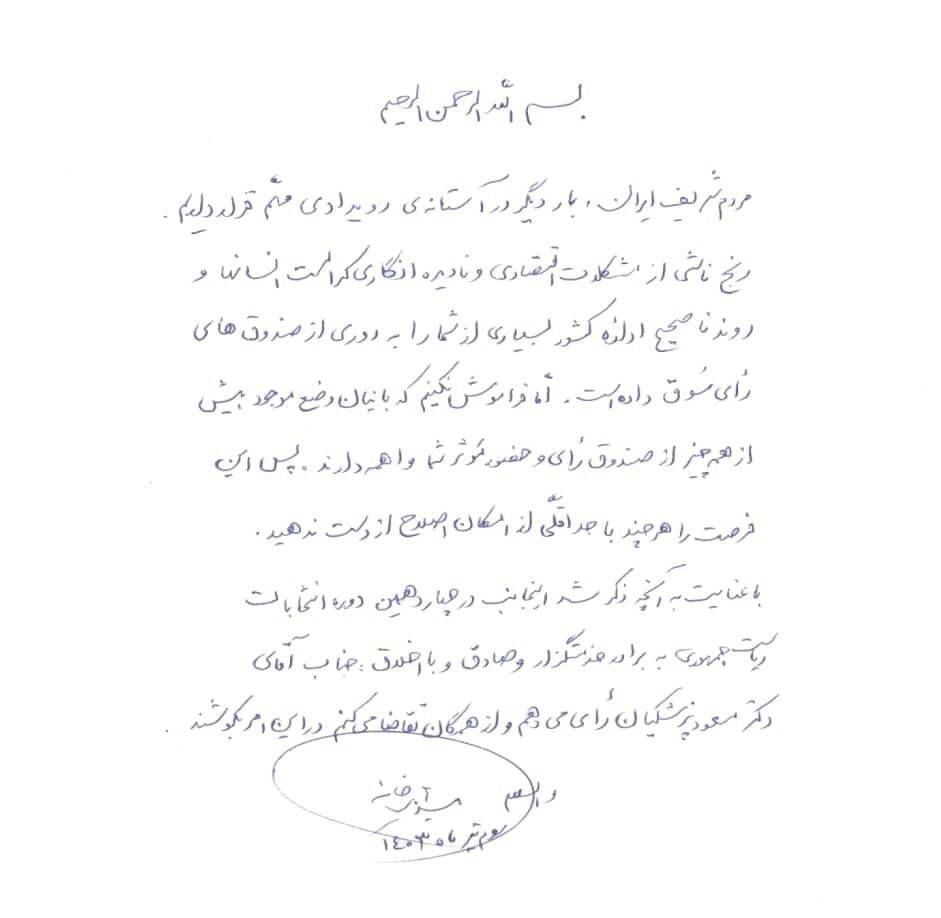 بسم الله الرحمن الرحیم
مردم شریف ایران، بار دیگر در آستانه‌ی رویدادی مهّم قرار داریم.
رنج ناشی از مشکلات اقتصادی و نادیده انگاری کرامت انسانها و
روند ناصحیح اداره کشور بسیاری از شما را به دوری از صندوق های
رأی سُوق داده است. امّا فراموش نکنیم که بانیان وضع موجود بیش
از همه چیز از صندوق رأی و حضور مُوثر شما واهمه دارند. پس این
فرصت را هرچند با حداقلّی از امکان اصلاح از دست ندهید.
با عنایت به آنچه ذکر شد اینجانب در چهاردهمین دوره انتخابات
ریاست جمهوری به برادر خدمتگزار و صادق و با اخلاق: جناب آقای
دکتر مسعود پزشکیان رأی می دهم و از همگان تقاضا می کنم در این امر بکوشند.
والسلام
تیر ماه ۱۴۰۳